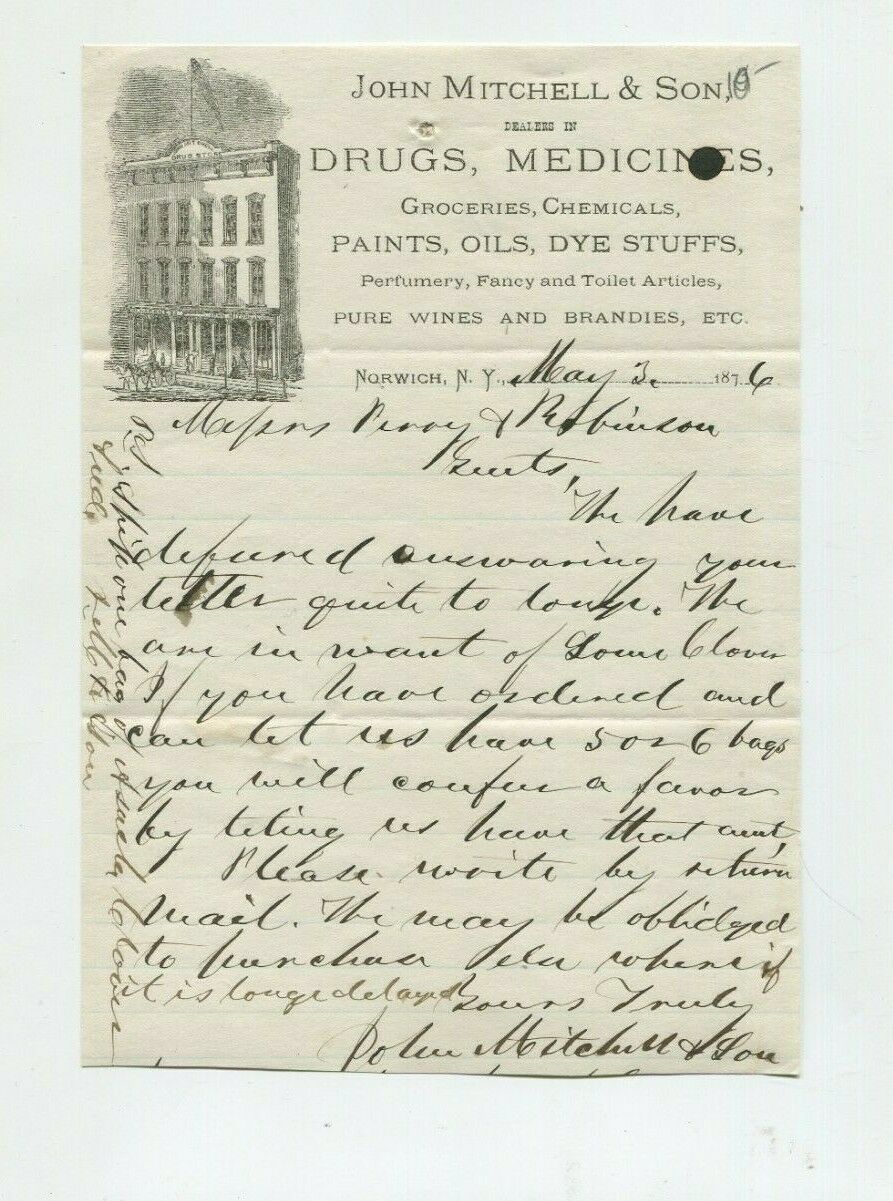 JOHN MITCHELL & SON,
DEALERS IN
DRUGS, MEDICINES,
GROCERIES, CHEMICALS,
PAINTS, OILS, DYE STUFFS,
Perfumery, Fancy and Toilet Articles,
PURE WINES AND BRANDIES, ETC.
NORWICH, N. Y., May 3. 1876
Messrs Perry & Robinson
Gents,
We have
defered answaring your
letter quite to long. We
are in want of Some Clover
If you have ordered and
can let us have 5 or 6 bags
you will confer a favor
by leting us have that amt,
Please write by return
mail. We may be oblidged
to purchase else where if
it is longe delayed
Yours Truly
John Mitchell & Son
P.S. Ship one bag of Clover
Seed,
DRUG STORE